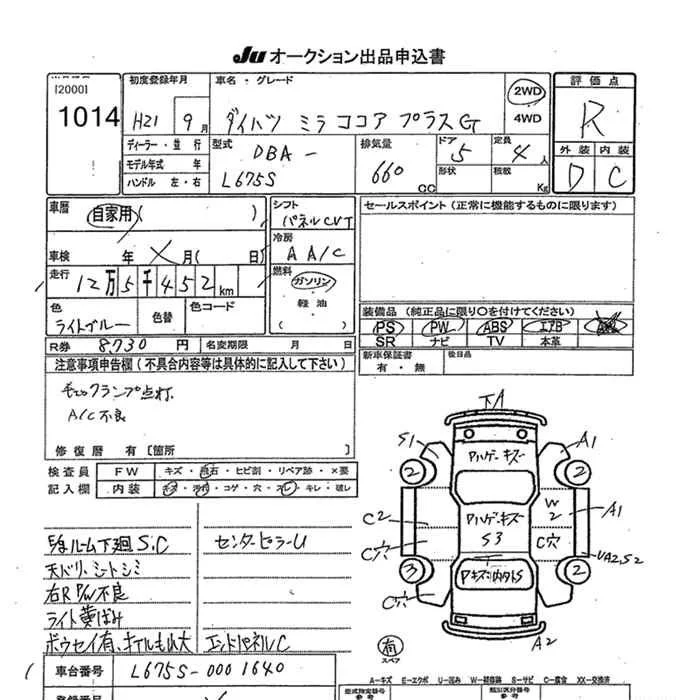 Ju オークション出品申込書
[2000]
1014
初度登録年月
H21 9月
車名・グレード
ダイハツ ミラ ココア プラスG
2WD
4WD
評価点
R
外装 内装
D C
ディーラー・並 行
モデル年式 年
ハンドル 左・右
型式
DBA -
L675S
排気量
660
CC
ドア
5
形状
定員
4人
積数
Kg
車歴
自家用( )
車検 年 月( 日)
走行
12万5千452km
色
ライトブルー
色替
色コード
シフト
パネルCVT
冷房
AA/C
燃料
ガソリン
軽 油
( )
セールスポイント(正常に機能するものに限ります)
装備品(純正品に限り○を付けてください)
PS PW ABS エアB
SR ナビ TV 本革
新車保証書
有・無
後日品
R券 8,730 円
名変期限 月 日
注意事項申告欄(不具合内容等は具体的に記入して下さい)
チェックランプ点灯
A/C不良
修復歴 有[箇所 ]
検査員
記入欄
FW キズ・飛石・ヒビ割・リペア跡・×要
内装 ・コゲ・穴・スレ・キレ・破レ
ルーム下廻S,C
センターピラーU
天ドリ、シートシミ
右R P/W不良
ライト黄ばみ
エンドパネルC
下A
S1
Pハゲ・キズ
A1
2
2
C2
Pハゲ・キズ
S3
W2
A1
C穴
C穴
UA2S2
3
2
C穴
A2
有
スペア
車台番号 L675S-0001640
A-キズ E-エクボ U-凹み W-補修跡 S-サビ C-腐食 XX-交換済